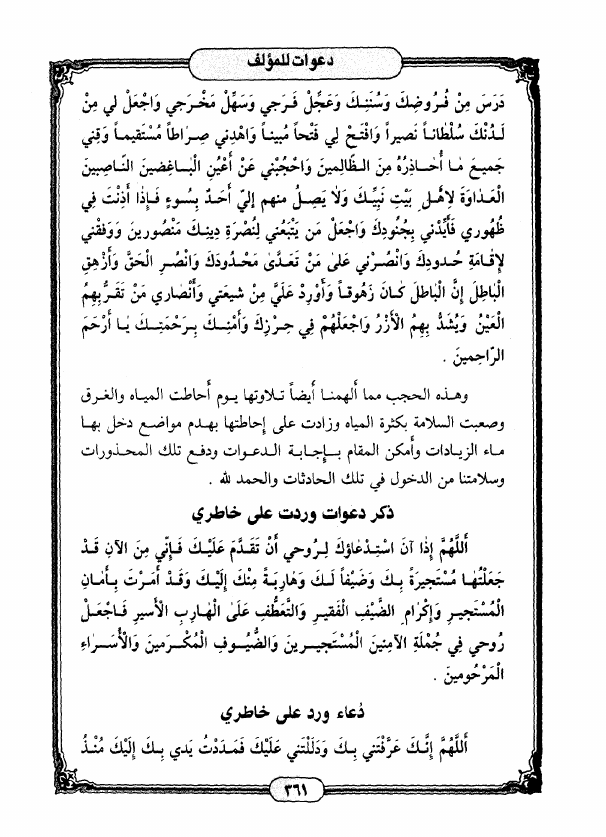 دعوات للمؤلف
دَرَسَ مِنْ فُرُوضِكَ وَسُنَنِكَ وَعَجِّلْ فَرَجي وَسَهِّلْ مَخْرَجي وَاجْعَلْ لي مِنْ
لَدُنْكَ سُلْطاناً نَصيراً وَافْتَحْ لي فَتْحاً مُبيناً وَاهْدِني صِراطاً مُسْتَقيماً وَقِني
جَميعَ مٰا أُحٰاذِرُهُ مِنَ الظّالِمينَ وَاحْجُبْني عَنْ أَعْيُنِ الْبٰاغِضينَ النّاصِبينَ
الْعَدٰاوَةَ لِاهْلِ بَيْتِ نَبِيِّكَ وَلاٰ يَصِلُ منهم إليّ أَحَدٌ بِسُوءٍ فَإِذٰا أَذِنْتَ في
ظُهُوري فَأَيِّدْني بِجُنُودِكَ وَاجْعَلْ مَن يَتْبَعُني لِنُصْرَةِ دينِكَ مَنْصُورينَ وَوَفِّقْني
لِإقٰامَةِ حُدودِكَ وَانْصُرْني عَلىٰ مَنْ تَعَدّىٰ مَحْدُودَكَ وَانْصُرِ الْحَقَّ وَأَزْهِقِ
الْبٰاطِلَ إنَّ الْبٰاطلَ كٰانَ زَهُوقاً وَأَوْرِدْ عَلَيَّ مِنْ شيعَتي وَأَنْصٰاري مَنْ تَقَرُّ بِهِمُ
الْعَيْنُ وَيُشَدُّ بِهِمُ الأَزْرُ وَاجْعَلْهُمْ في حِرْزِكَ وَأَمْنِكَ بِرَحْمَتِكَ يٰا أَرْحَمَ
الرّاحِمينَ .
وهذه الحجب مما ألهمنا أيضاً تلاوتها يوم أحاطت المياه والغرق
وصعبت السلامة بكثرة المياه وزادت على إحاطتها بهدم مواضع دخل بها
ماء الزيادات وأمكن المقام بإجابة الدعوات ودفع تلك المحذورات
وسلامتنا من الدخول في تلك الحادثات والحمد لله .
ذكر دعوات وردت على خاطري
أَللّٰهُمَّ إذٰا آنَ اسْتِدْعٰاؤُكَ لِرُوحي أَنْ تَقَدَّمَ عَلَيْكَ فَإنّي مِنَ الآنِ قَدْ
جَعَلْتُهٰا مُسْتَجيرَةً بِكَ وَضَيْفاً لَكَ وَهٰارِبَةً مِنْكَ إلَيْكَ وَقَدْ أَمَرْتَ بِأَمٰانِ
الْمُسْتَجيرِ وَإكْرٰامِ الضَّيْفِ الْفَقيرِ وَالتَّعَطُّفِ عَلىٰ الْهٰارِبِ الأَسيرِ فَاجْعَلْ
رُوحي في جُمْلَةِ الآمِنينَ الْمُسْتَجيرينَ وَالضُّيُوفِ الْمُكْرَمينَ وَالْأُسَرٰاءِ
الْمَرْحُومينَ .
دُعاء ورد على خاطري
أَللّٰهُمَّ إنَّكَ عَرَّفْتَني بِكَ وَدَلَلْتَني عَلَيْكَ فَمَدَدْتُ يَدي بِكَ إلَيْكَ مُنْذُ
٣٦١